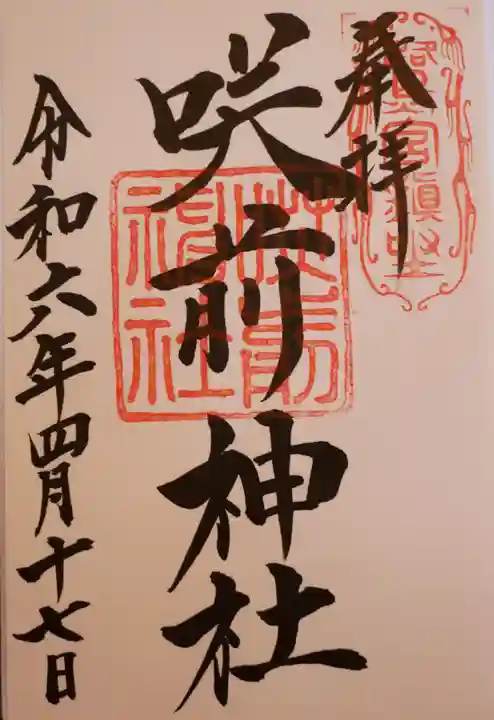 奉拝
咲前神社
咲前神社
令和六年四月十七日